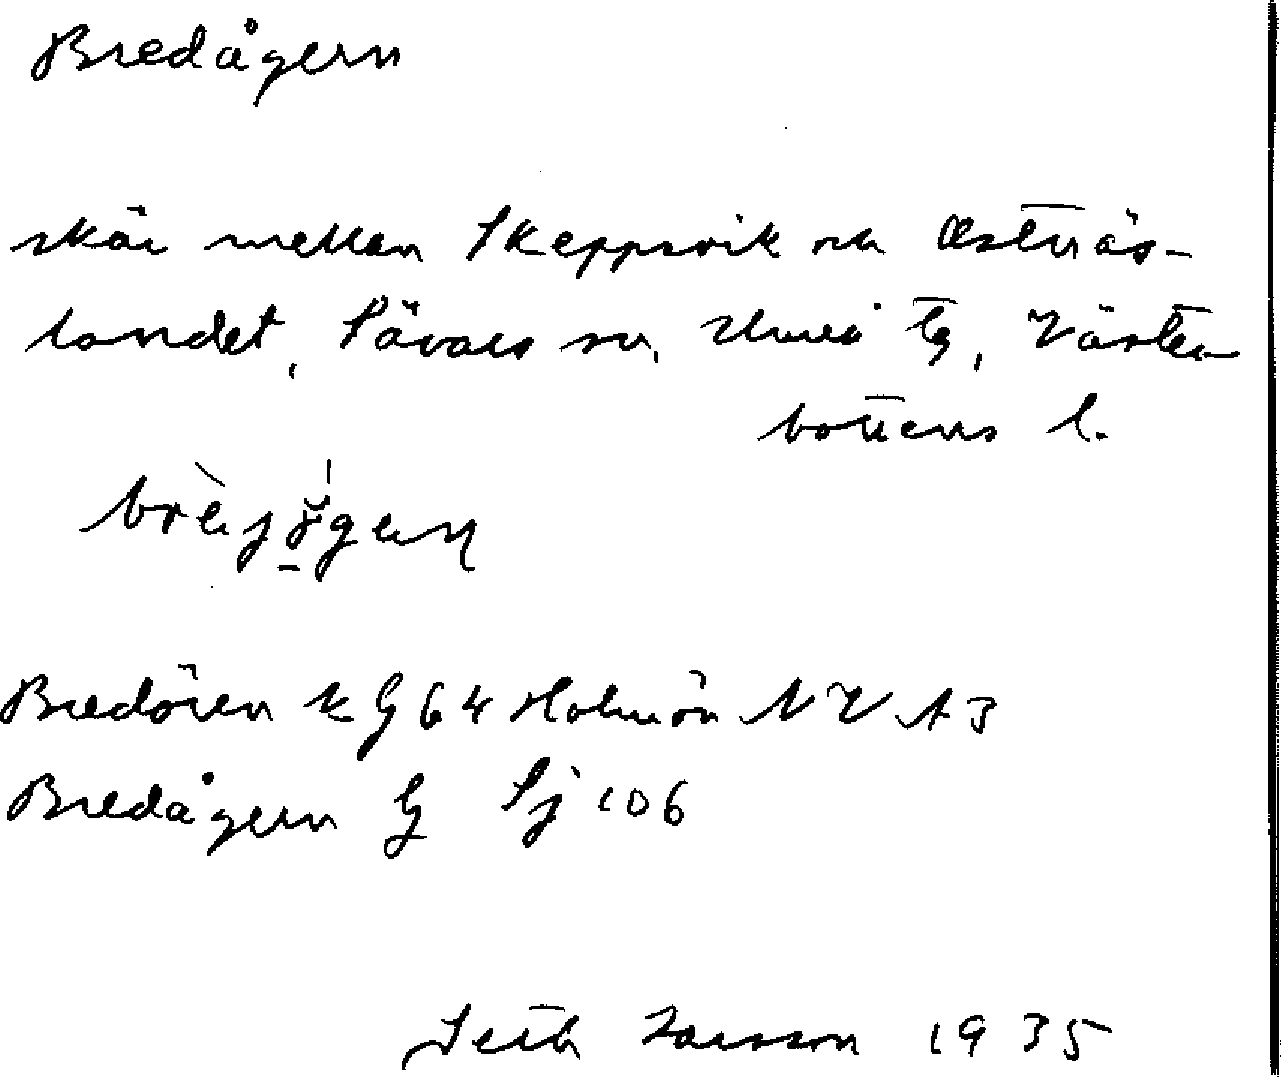 Bredågern
skär mellan Skeppsvik och Östnäs-
landet, Sävars sn, Umeå tg, Väster-
bottens l.
Bredören k G 64 Holmön NV A3
Bredågern G Sj 106
Seth Jansson 1935